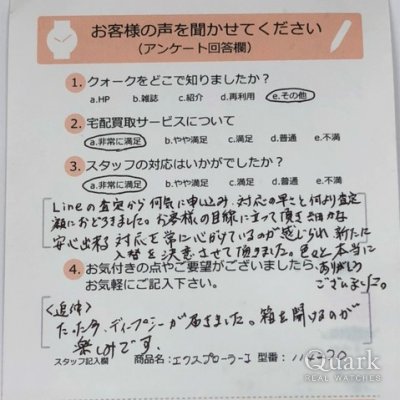 お客様の声を聞かせてください
(アンケート回答欄)
1. クォークをどこで知りましたか？
a.HP b.雑誌 c.紹介 d.再利用 e.その他
2. 宅配買取サービスについて
a.非常に満足 b.やや満足 c.満足 d.普通 e.不満
3. スタッフの対応はいかがでしたか？
a.非常に満足 b.やや満足 c.満足 d.普通 e.不満
Lineの査定から何気に申し込み、対応の早さと何より査定
額におどろきました。お客様の目線に立って頂き細かな
安心出来る対応を常に心がけているのが感じられ新たに
入替を決意させて頂きました。色々と本当に
ありがとう
ございました。
4. お気付きの点やご要望がございましたら、
お気軽にご記入下さい。
〈追伸〉
たった今、ディープシーが届きました。箱を開けるのが
楽しみです。
スタッフ記入欄 商品名：エクスプローラーⅠ 型番：114270
Quark
REAL WATCHES